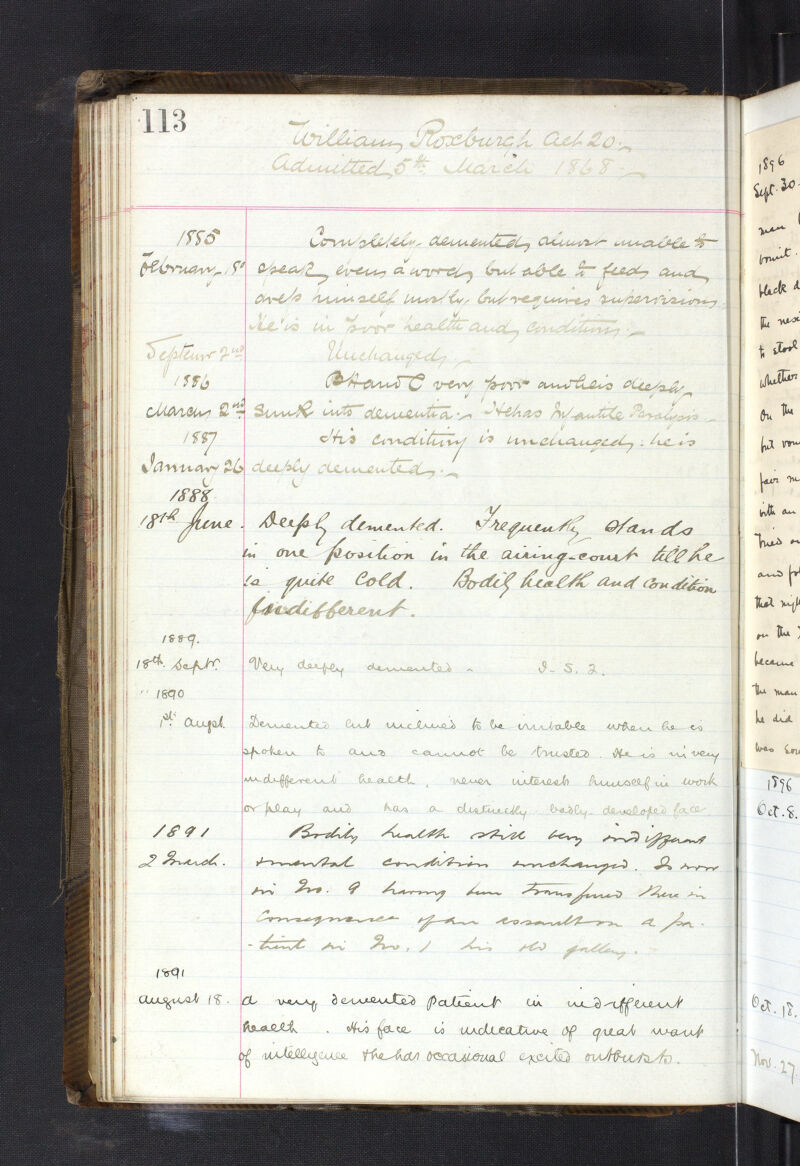 113
William Roxburgh Aet 20.
Admitted 5th March 1868.
1885 Completely demented, almost unable to
February 18 speak even a word, but able to feed and
dress himself mostly, but requires supervision.
He is in poor health and condition.
Septemr 2nd Unchanged.
1886 BH and C very poor and he is deeply
March 2nd sunk into dementia. He has Infantile Paralysis.
1887 His condition is unchanged. he is
January 26 deeply demented.
1888.
18th June. Deeply demented. Frequently stands
in one position in the airing-court till he
is quite cold. Bodily health and condition
indifferent.
1889.
18th Septr. Very deeply demented - I. S. 2.
" 1890
1st Augst. Demented but inclined to be irritable when he is
spoken to and cannot be trusted. He is in very
indifferent health, never interests himself in work
or play and has a distinctly badly-developed face
1891 Bodily health still very indifferent
2 March. & mental condition unchanged. Is now
in No. 9 having been transferred there in
consequence of an assault on a pa-
-tient in No. 1 his old gallery.
1891
August 18. A very demented patient in indifferent
health. His face is indicative of great want
of intelligence & he has occasional excited outbursts.
1896
Sept. 30.
man
vomit.
black d
the nex
to stool
whether
On the
but vom
fair m
with an
Tried
and
that nigh
on the
became
the man
he did
was
1896
Oct. 8.
Oct. 18.
Nov. 27.